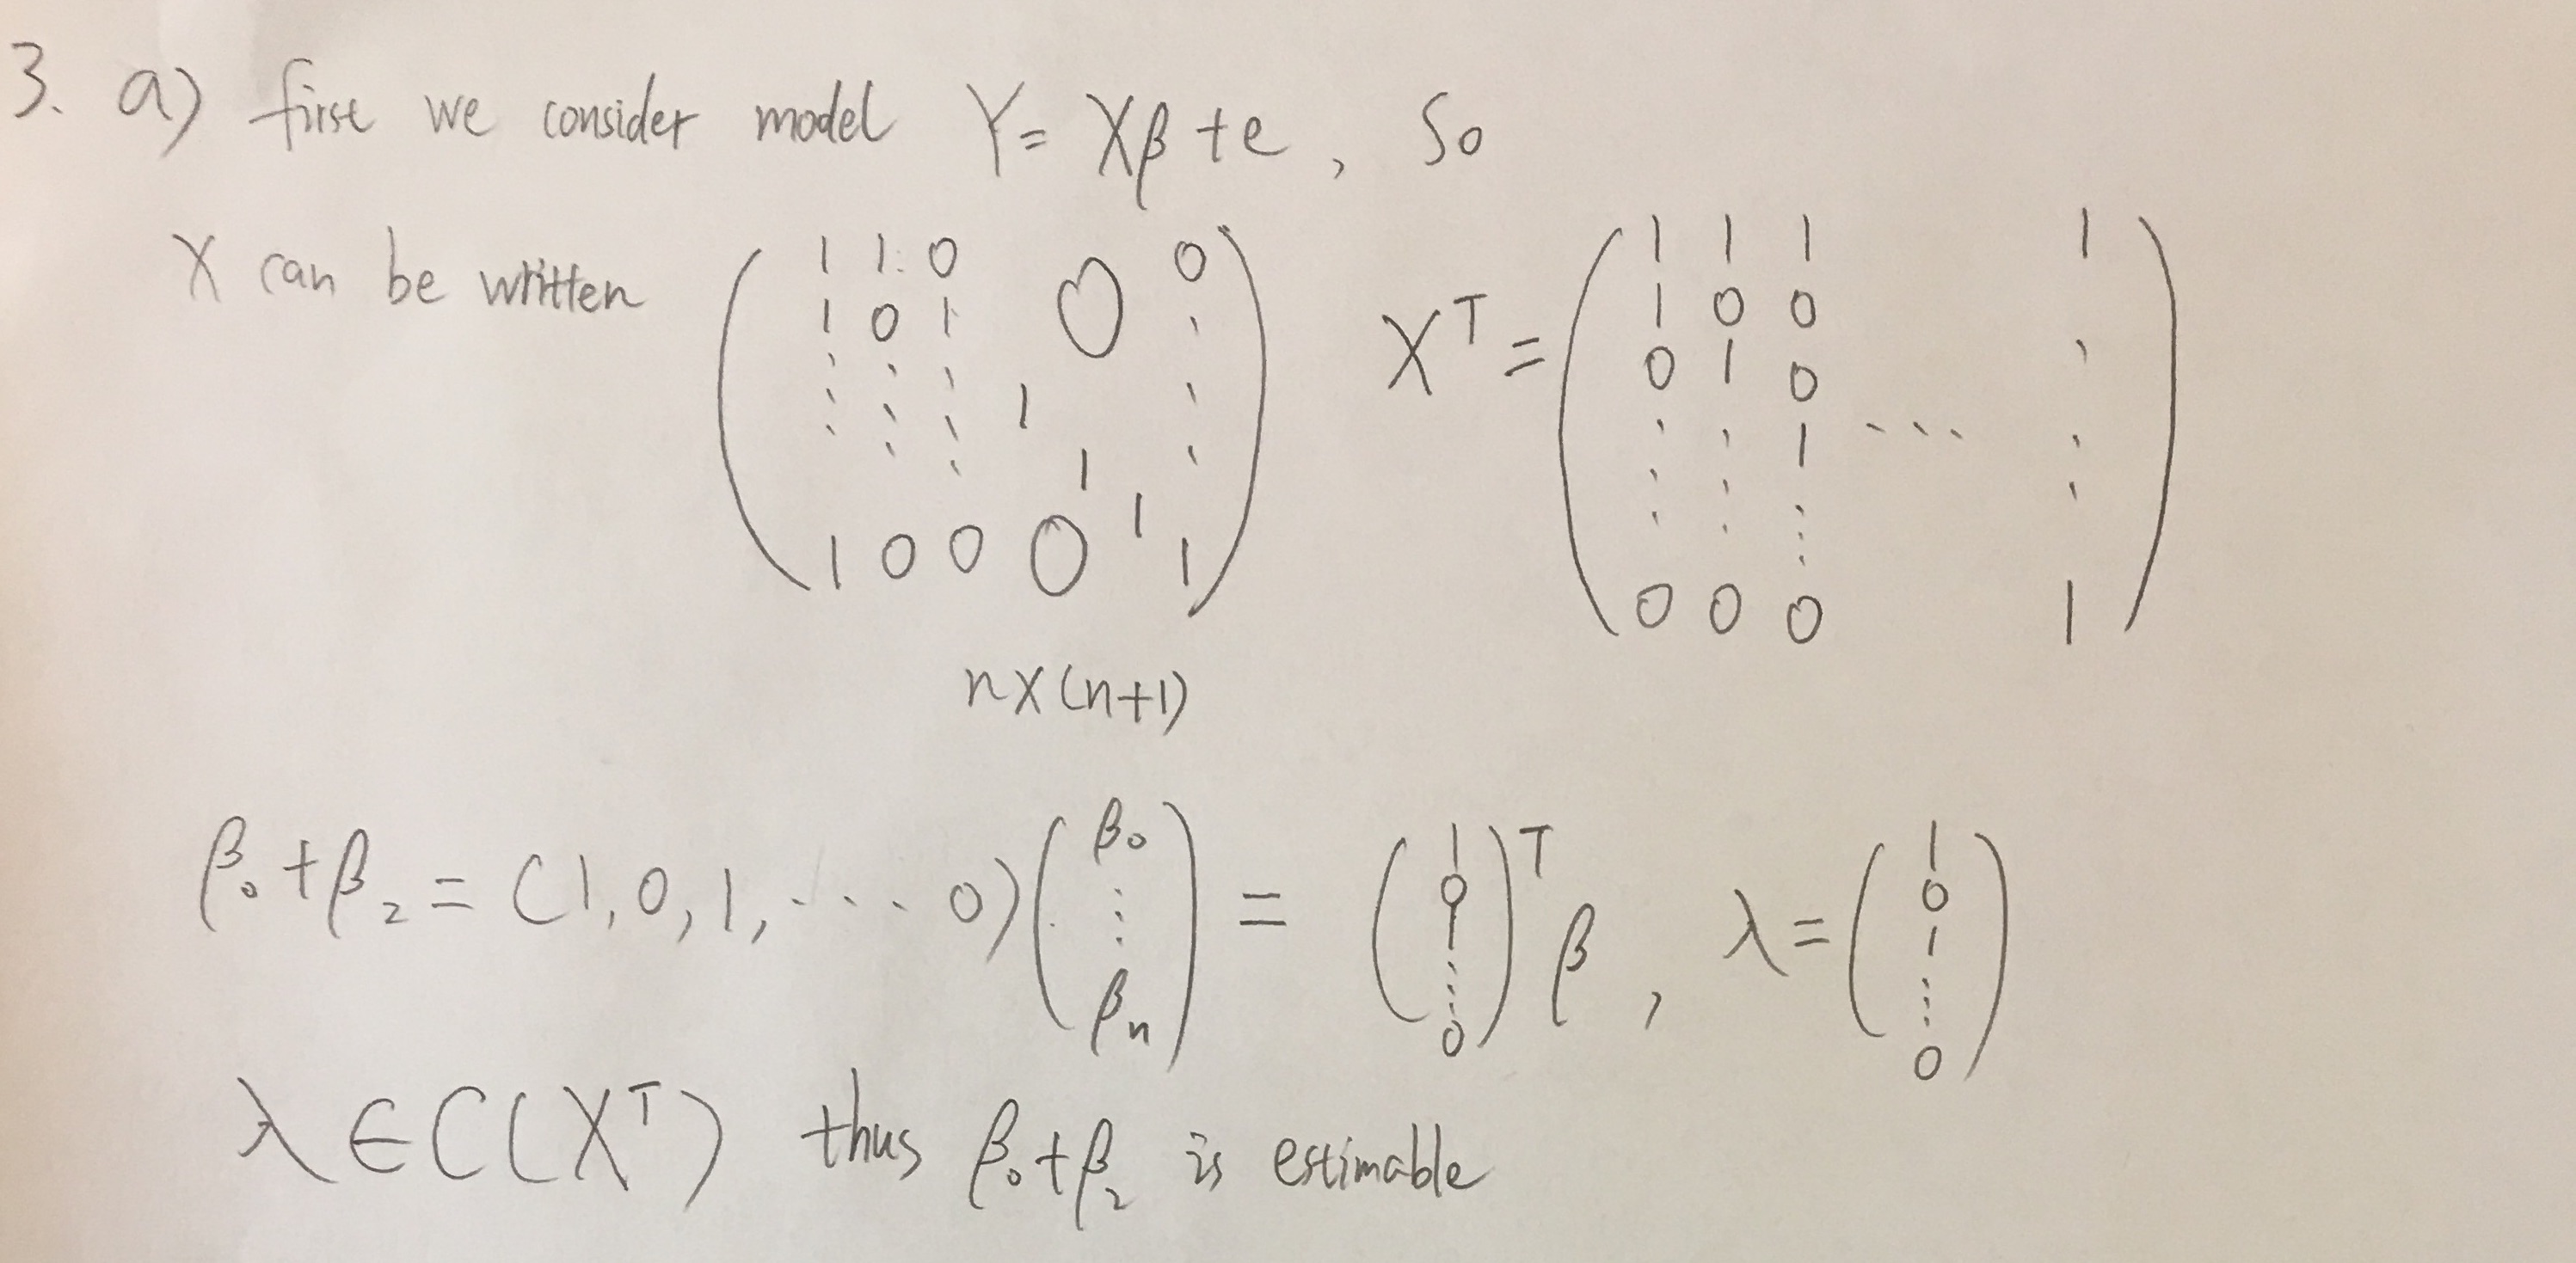 3. a) first we consider model Y = Xβ + e, So
X can be written
1 1 0 0 0
1 0 1 ⋮
⋮ ⋮ ⋮ 1 ⋮
1
1
1 0 0 0 1
n×(n+1)
X^T =
1 1 1 1
1 0 0 ⋮
0 1 0 ⋮
⋮ ⋮ 1 ... ⋮
0 0 0 1
β₀+β₂ = (1, 0, 1, ... 0) (β₀ ⋮ βₙ) = (1 0 1 ⋮ 0)^T β, λ = (1 0 1 ⋮ 0)
λ ∈ C(X^T) thus β₀+β₂ is estimable